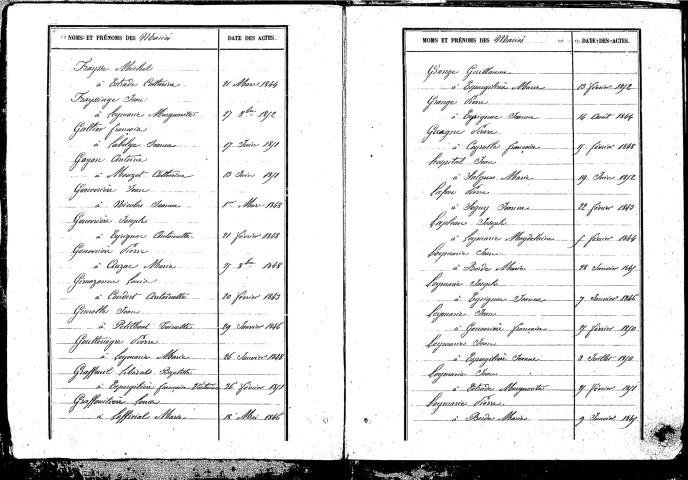 NOMS ET PRÉNOMS DES Mariés
DATE DES ACTES.
Fraysse Michel
à Estrade Catherine 21 Mars 1844
Fraysinge Jean
à Leymarie Marguerite 27 8bre 1842
Galtier françois
à Labilge Jeanne 17 Juin 1851
Gayou Antoine
à Mouzet Catherine 13 Juin 1851
Genevrière Jean
à Nicolas Jeanne 1er Mars 1848
Genevrière Joseph
à Eyrignac Antoinette 21 février 1848
Genevrière Pierre
à Auzac Marie 27 8bre 1848
Gimazanne Louis
à Coudert Antoinette 20 février 1843
Gimelle Jean
à Petitbout Toinette 29 Janvier 1846
Goutteneigre Pierre
à Leymarie Marie 26 Janvier 1848
Graffeuil Libéral Baptiste
à Espargilière françoise 26 février 1851
Graffouillère Louis
à Lafficial Marie 18 Mai 1846
NOMS ET PRÉNOMS DES Mariés
DATE DES ACTES.
Grange Guillaume
à Espargilière Marie 13 février 1852
Grange Pierre
à Eyrignac Jeanne 14 Août 1844
Guague Pierre
à Ceyrolle françoise 9 février 1848
hospital Jean
à Salgues Marie 19 Juin 1852
Lafon Pierre
à Seguy Jeanne 22 février 1843
Lapleau Joseph
à Leymarie Magdeleine février 1844
Leymarie Jean
à Borde Marie 28 Janvier
Leymarie Joseph
à Eyrignac Jeanne 7 Janvier 1846
Leymarie Jean
à Genevrière françoise février 1850
Leymarie Jean
à Espargilière Jeanne 2 Juillet 1850
Leymarie Jean
à Estrade Marguerite février 1851
Leymarie Pierre
à Borde Marie 9 Janvier